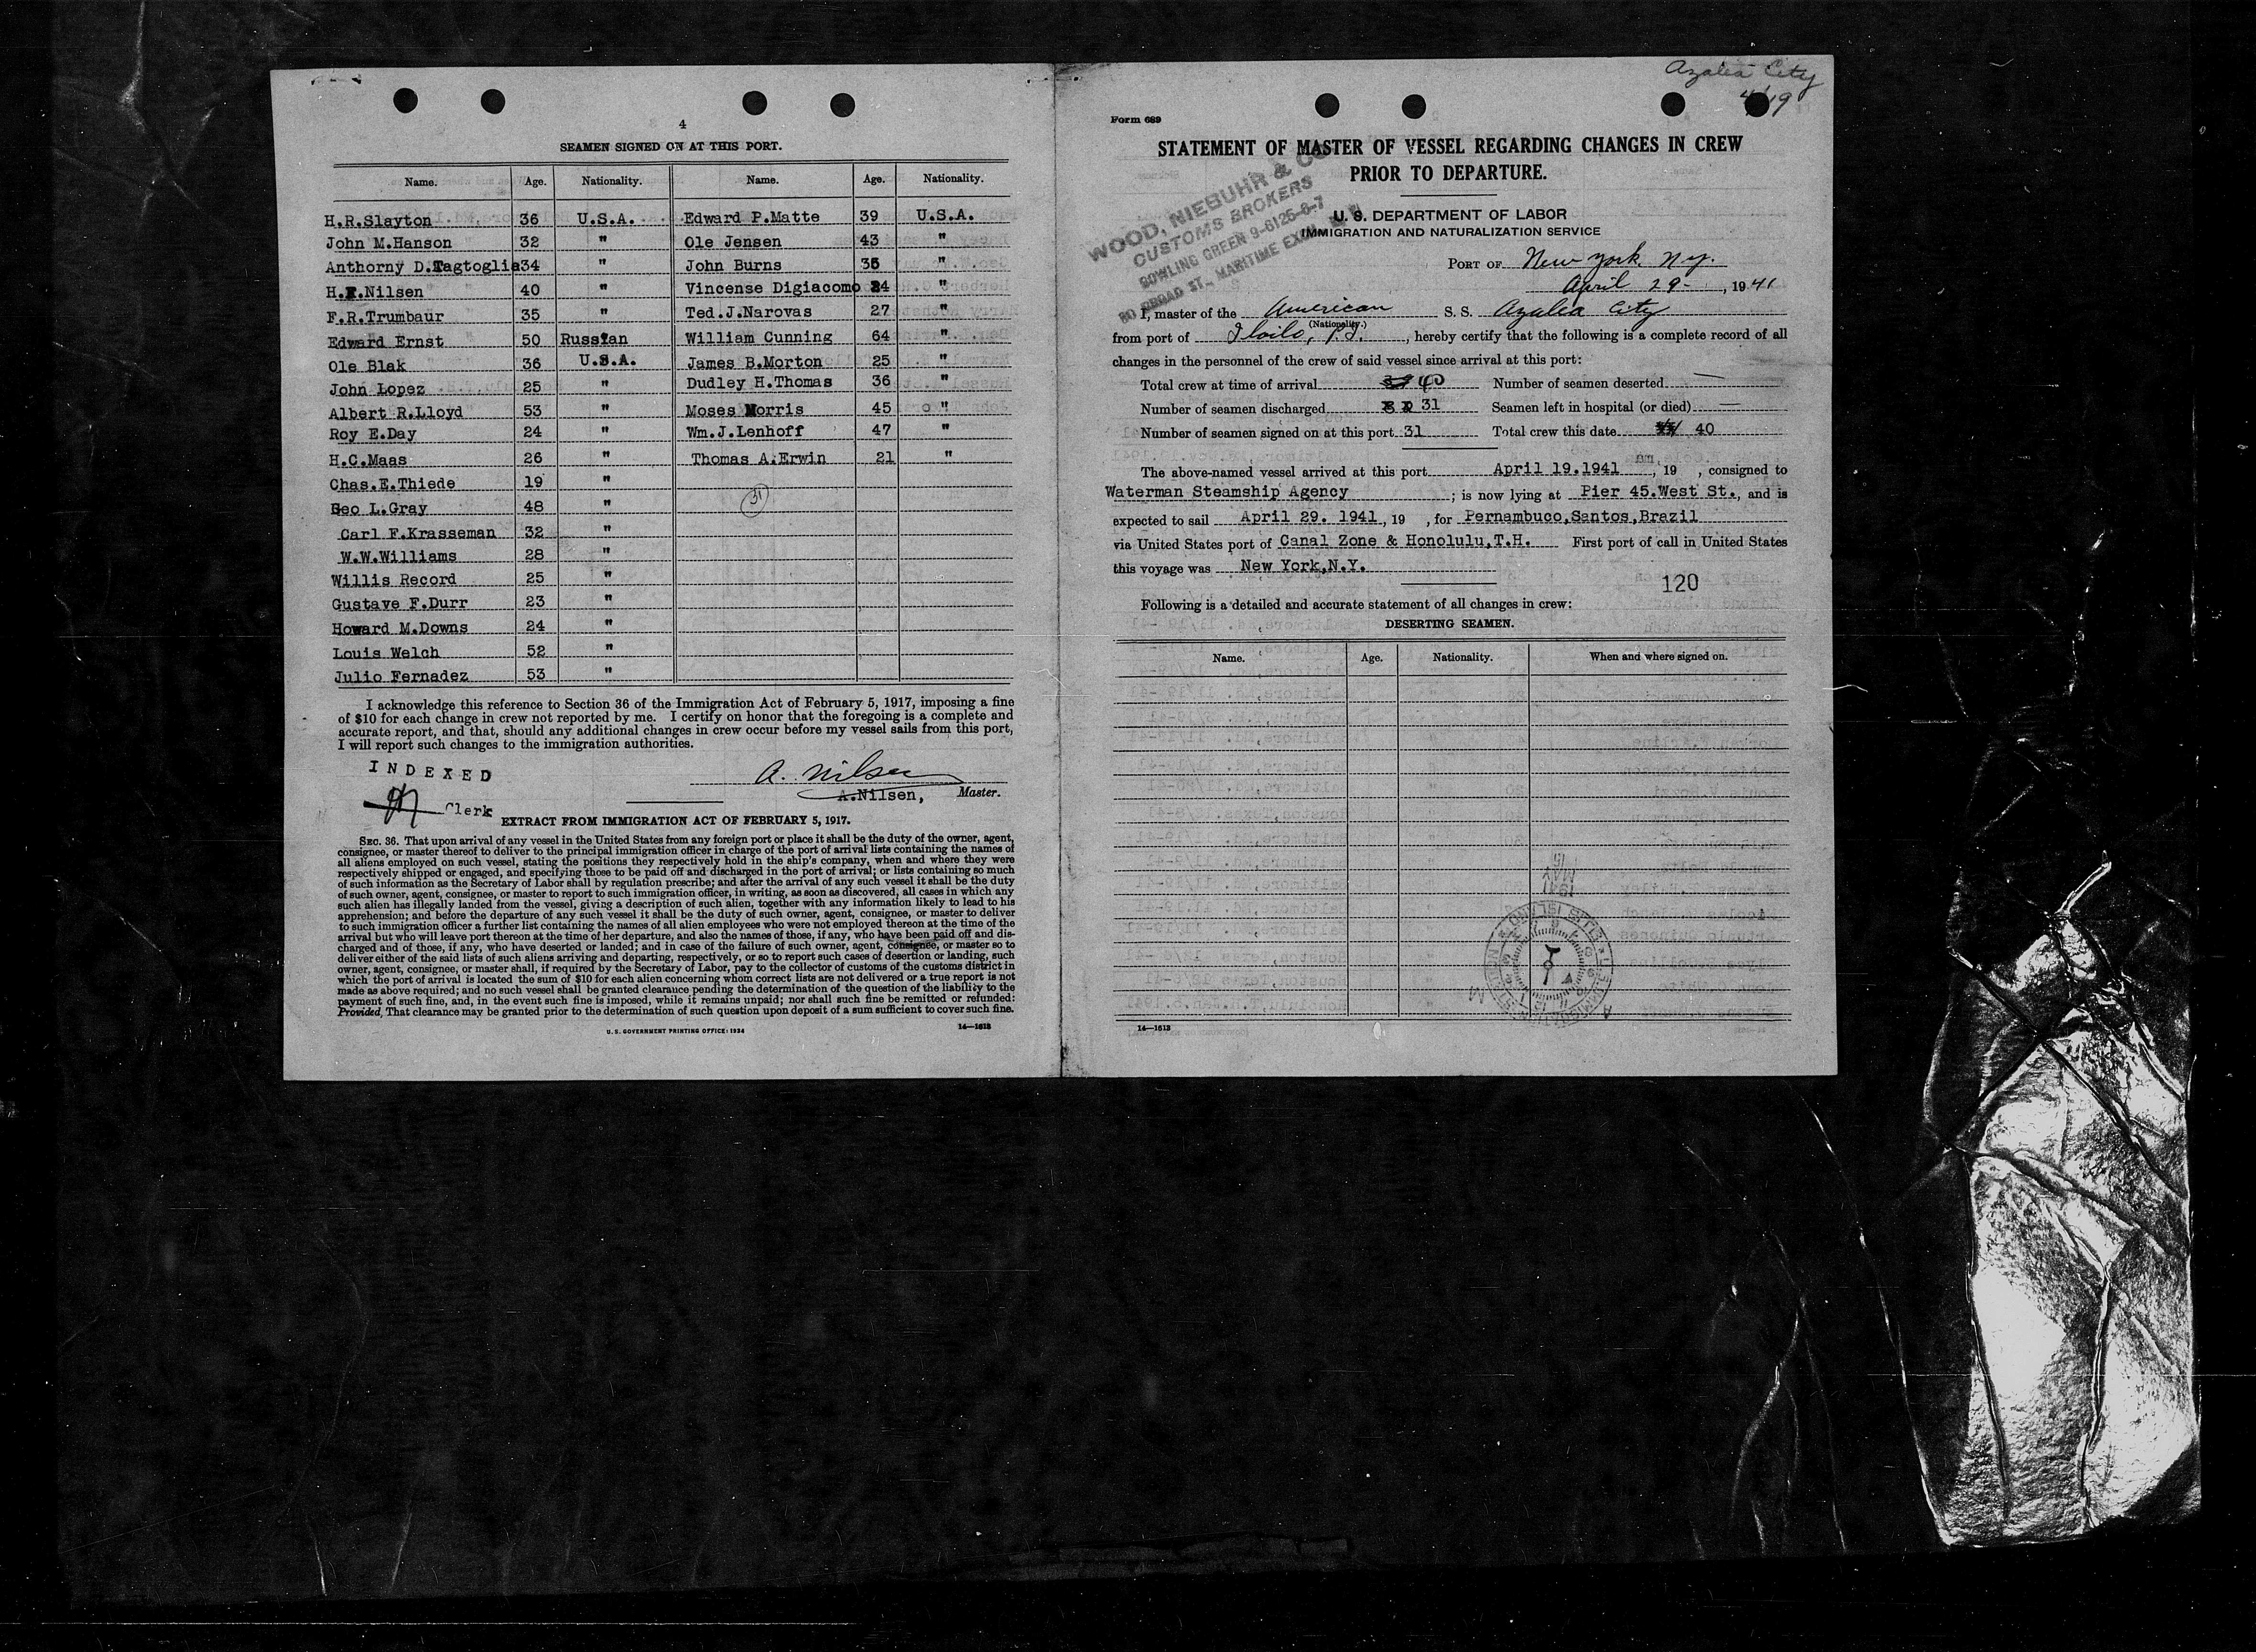 4
SEAMEN SIGNED ON AT THIS PORT.
Name. Age. Nationality. Name. Age. Nationality.
H.R.Slayton 36 U.S.A. Edward P.Matte 39 U.S.A.
John M.Hanson 32 " Ole Jensen 43 "
Anthorny D.Tagtoglia 34 " John Burns 36 "
H.E.Nilsen 40 " Vincense Digiacomo 24 "
F.R.Trumbaur 35 " Ted.J.Narovas 27 "
Edward Ernst 50 Russian William Cunning 64 "
Ole Blak 36 U.S.A. James B.Morton 25 "
John Lopez 25 " Dudley H.Thomas 36 "
Albert R.Lloyd 53 " Moses Morris 45 "
Roy E.Day 24 " Wm.J.Lenhoff 47 "
H.C.Maas 26 " Thomas A.Erwin 21 "
Chas.E.Thiede 19 "
Geo L.Gray 48 " 31
Carl F.Krasseman 32 "
W.W.Williams 28 "
Willis Record 25 "
Gustave F.Durr 23 "
Howard M.Downs 24 "
Louis Welch 52 "
Julio Fernadez 53 "
I acknowledge this reference to Section 36 of the Immigration Act of February 5, 1917, imposing a fine
of $10 for each change in crew not reported by me. I certify on honor that the foregoing is a complete and
accurate report, and that, should any additional changes in crew occur before my vessel sails from this port,
I will report such changes to the immigration authorities.
INDEXED
A. Nilsen
A.Nilsen, Master.
Clerk
EXTRACT FROM IMMIGRATION ACT OF FEBRUARY 5, 1917.
SEC. 36. That upon arrival of any vessel in the United States from any foreign port or place it shall be the duty of the owner, agent,
consignee, or master thereof to deliver to the principal immigration officer in charge of the port of arrival lists containing the names of
all aliens employed on such vessel, stating the positions they respectively hold in the ship's company, when and where they were
respectively shipped or engaged, and specifying those to be paid off and discharged in the port of arrival; or lists containing so much
of such information as the Secretary of Labor shall by regulation prescribe; and after the arrival of any such vessel it shall be the duty
of such owner, agent, consignee, or master to report to such immigration officer, in writing, as soon as discovered, all cases in which any
such alien has illegally landed from the vessel, giving a description of such alien, together with any information likely to lead to his
apprehension; and before the departure of any such vessel it shall be the duty of such owner, agent, consignee, or master to deliver
to such immigration officer a further list containing the names of all alien employees who were not employed thereon at the time of the
arrival but who will leave port thereon at the time of her departure, and also the names of those, if any, who have been paid off and dis-
charged and of those, if any, who have deserted or landed; and in case of the failure of such owner, agent, consignee, or master so to
deliver either of the said lists of such aliens arriving and departing, respectively, or so to report such cases of desertion or landing, such
owner, agent, consignee, or master shall, if required by the Secretary of Labor, pay to the collector of customs of the customs district in
which the port of arrival is located the sum of $10 for each alien concerning whom correct lists are not delivered or a true report is not
made as above required; and no such vessel shall be granted clearance pending the determination of the question of the liability to the
payment of such fine, and, in the event such fine is imposed, while it remains unpaid; nor shall such fine be remitted or refunded:
Provided, That clearance may be granted prior to the determination of such question upon deposit of a sum sufficient to cover such fine.
U. S. GOVERNMENT PRINTING OFFICE: 1934 14—1613
Azalea City
4/19
Form 689
STATEMENT OF MASTER OF VESSEL REGARDING CHANGES IN CREW
PRIOR TO DEPARTURE.
WOOD, NIEBUHR & CO
CUSTOMS BROKERS
BOWLING GREEN 9-6125-6-7
80 BROAD ST., MARITIME
U. S. DEPARTMENT OF LABOR
IMMIGRATION AND NATURALIZATION SERVICE
PORT OF New York, N.Y.
April 29-, 1941
I, master of the American S. S. Azalea City
(Nationality.)
from port of Iloilo, P.I., hereby certify that the following is a complete record of all
changes in the personnel of the crew of said vessel since arrival at this port:
Total crew at time of arrival 40 Number of seamen deserted —
Number of seamen discharged 31 Seamen left in hospital (or died) —
Number of seamen signed on at this port 31 Total crew this date 40
The above-named vessel arrived at this port April 19.1941 am, 19 , consigned to
Waterman Steamship Agency ; is now lying at Pier 45.West St., and is
expected to sail April 29. 1941, 19 , for Pernambuco,Santos,Brazil
via United States port of Canal Zone & Honolulu,T.H. First port of call in United States
this voyage was New York,N.Y.
120
Following is a detailed and accurate statement of all changes in crew:
DESERTING SEAMEN.
Name. Age. Nationality. When and where signed on.
1941
MAY
15
14—1613